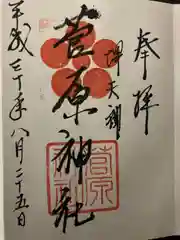 奉拝
坤天満
菅原神社
平成三十年八月二十五日
菅原
神社